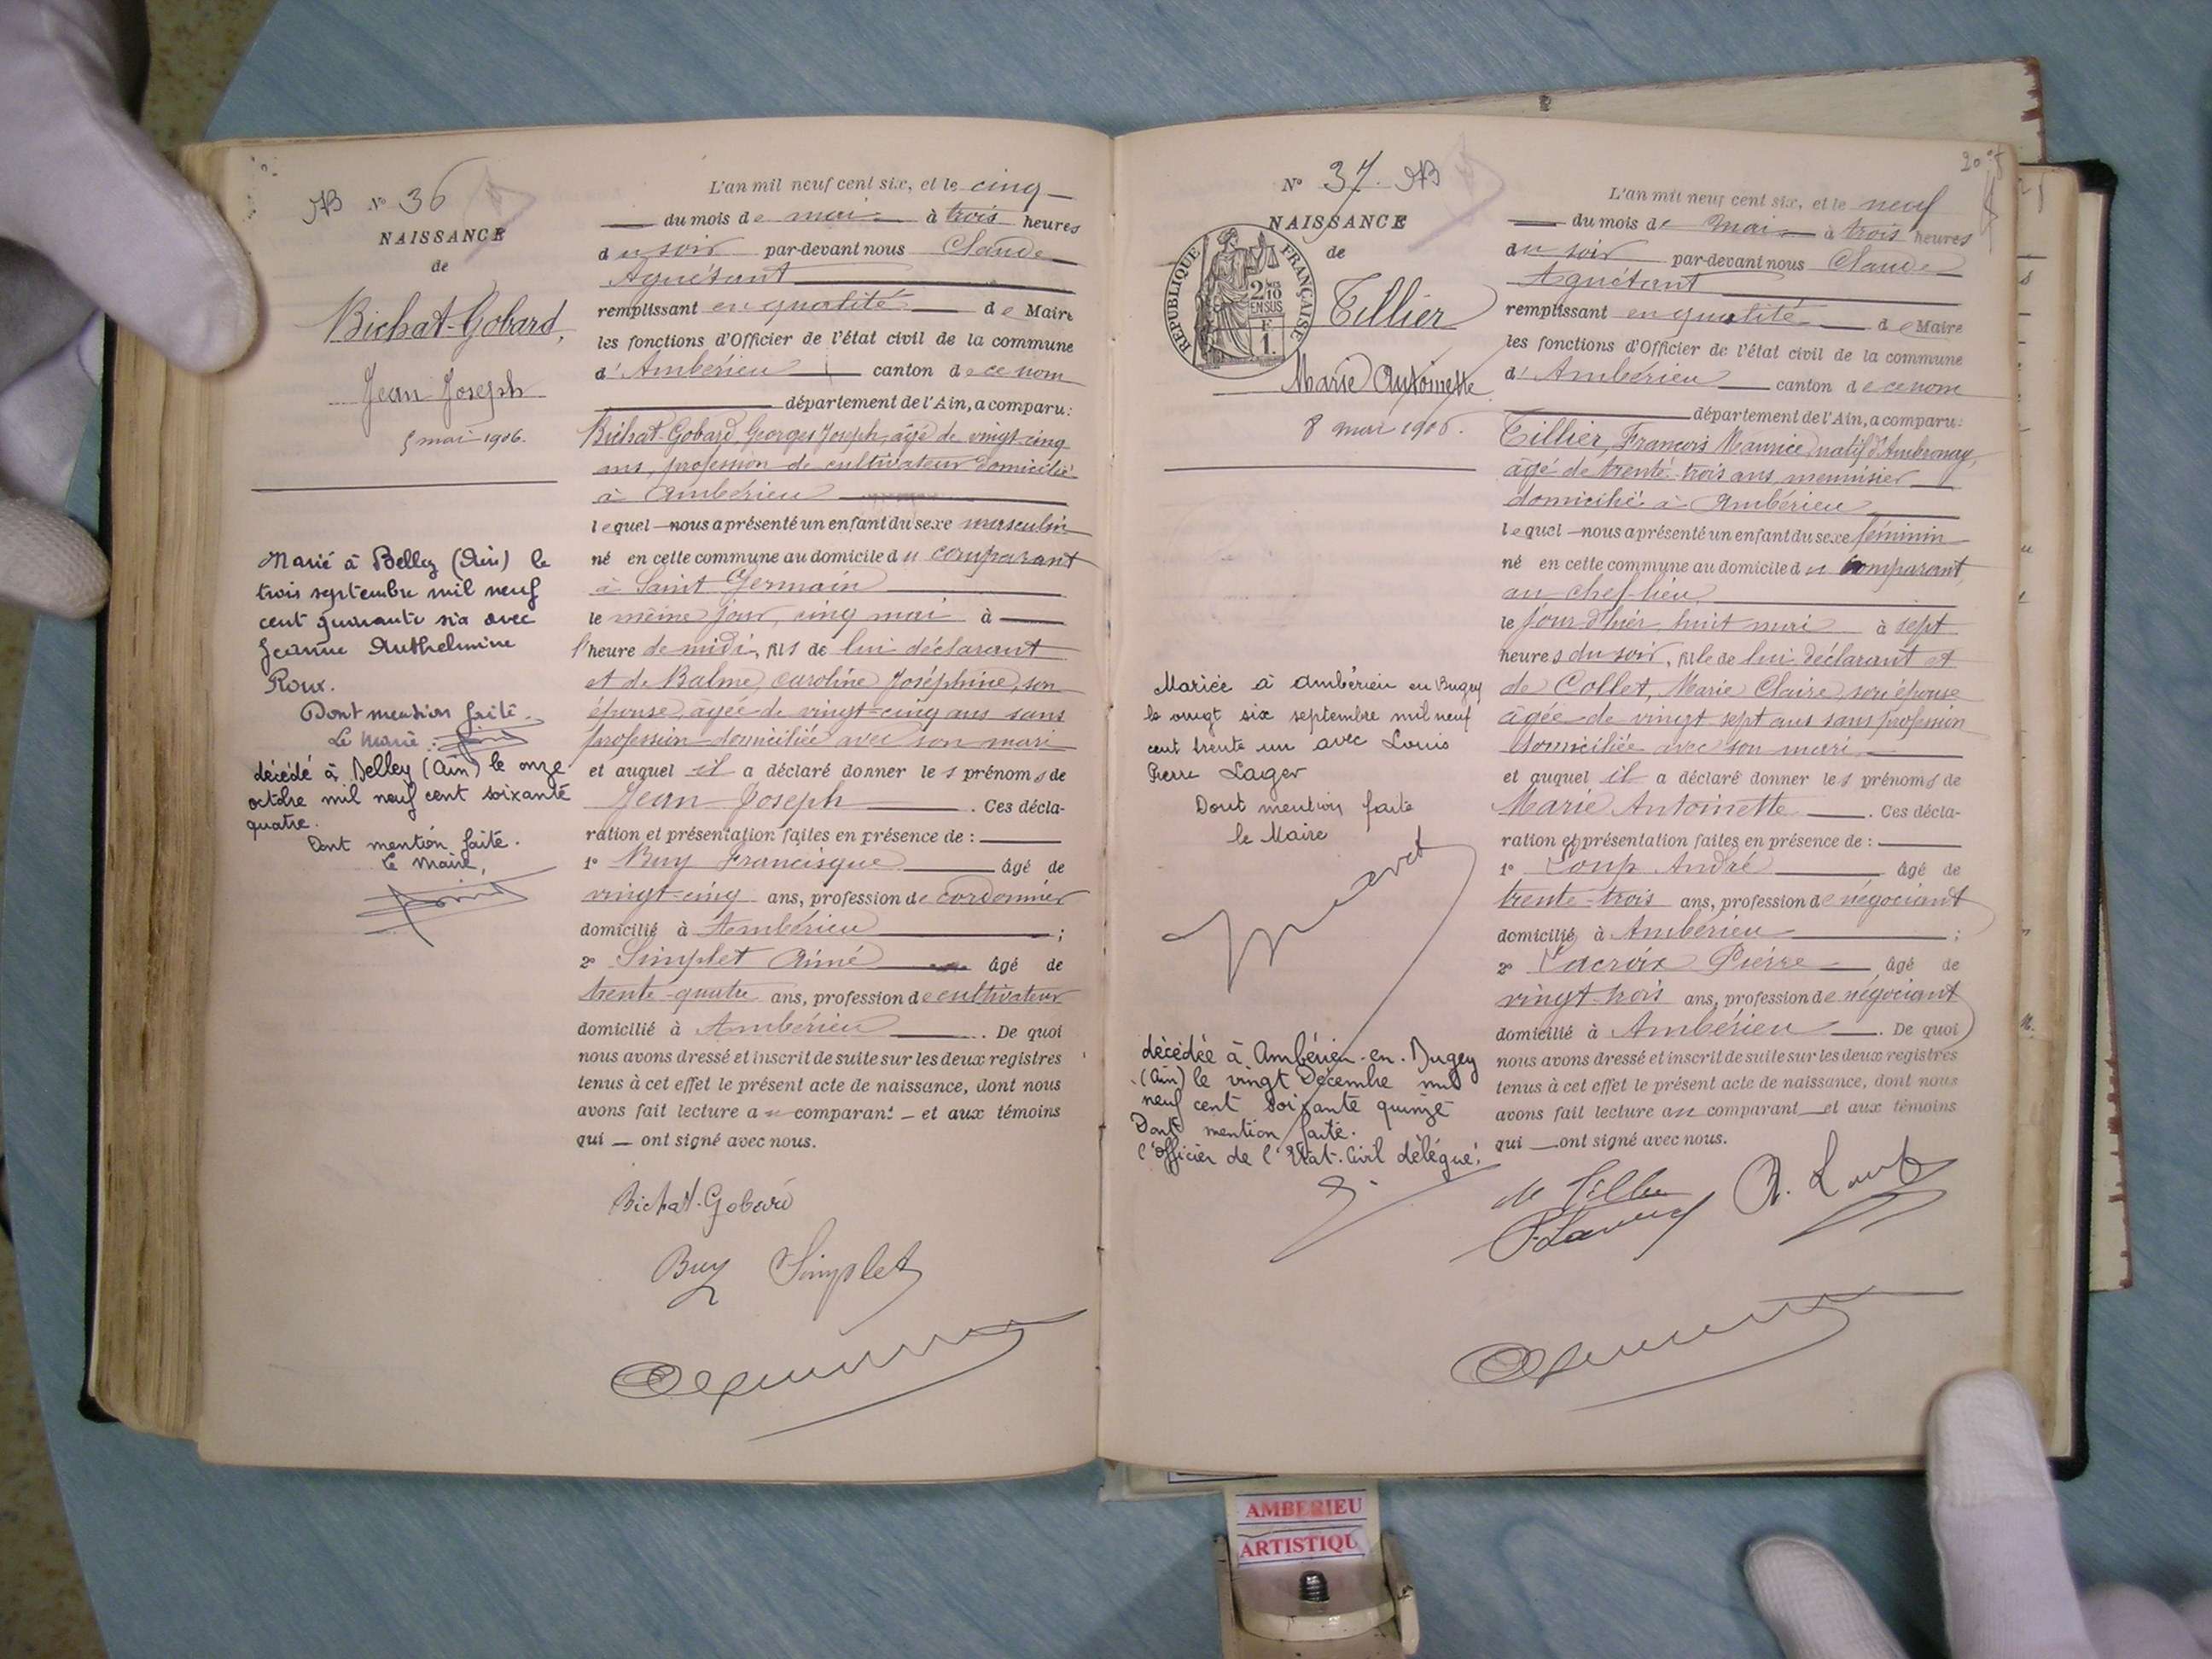 AB N° 36
NAISSANCE
de
Bichat-Gobard,
Jean Joseph
5 mai 1906.
Marié à Belley (Ain) le
trois septembre mil neuf
cent quarante six avec
Jeanne Anthelmine
Roux.
Dont mention faite.
Le Maire
décédé à Belley (Ain) le onze
octobre mil neuf cent soixante
quatre.
Dont mention faite.
Le Maire,
L'an mil neuf cent six, et le cinq
du mois de mai à trois heures
du soir par-devant nous Claude
Aguétant
remplissant en qualité de Maire
les fonctions d'Officier de l'état civil de la commune
d'Ambérieu canton de ce nom
département de l'Ain, a comparu:
Bichat-Gobard, Georges Joseph, âgé de vingt-cinq
ans, profession de cultivateur domicilié
à Ambérieu
lequel nous a présenté un enfant du sexe masculin
né en cette commune au domicile du comparant
à Saint Germain
le même jour, cinq mai à
l'heure de midi, fils de lui déclarant
et de Balme, Caroline Joséphine, son
épouse, agée de vingt-cinq ans sans
profession domiciliée avec son mari
et auquel il a déclaré donner les prénoms de
Jean Joseph. Ces décla-
ration et présentation faites en présence de :
1° Buy Francisque âgé de
vingt-cinq ans, profession de cordonnier
domicilié à Ambérieu ;
2° Simplet Aimé âgé de
trente-quatre ans, profession de cultivateur
domicilié à Ambérieu. De quoi
nous avons dressé et inscrit de suite sur les deux registres
tenus à cet effet le présent acte de naissance, dont nous
avons fait lecture au comparant et aux témoins
qui ont signé avec nous.
Bichat-Gobard
Buy Simplet
N° 37. AB
NAISSANCE
de
RÉPUBLIQUE FRANÇAISE
2/10 EN SUS
F
1.
Tillier
Marie Antoinette
8 mai 1906.
Mariée à Ambérieu en Bugey
le vingt six septembre mil neuf
cent trente un avec Louis
Pierre Lager
Dont mention faite
le Maire
décédée à Ambérieu-en-Bugey
(Ain) le vingt Décembre mil
neuf cent soixante quinze
Dont mention faite.
l'Officier de l'Etat-Civil délégué,
L'an mil neuf cent six, et le neuf
du mois de mai à trois heures
du soir par-devant nous Claude
Aguétant
remplissant en qualité de Maire
les fonctions d'Officier de l'état civil de la commune
d'Ambérieu canton de ce nom
département de l'Ain, a comparu:
Tillier, François Maurice, natif d'Ambronay,
âgé de trente-trois ans, menuisier
domicilié à Ambérieu
lequel nous a présenté un enfant du sexe féminin
né en cette commune au domicile du comparant
au chef-lieu
le jour d'hier, huit mai à sept
heures du soir, fille de lui déclarant et
de Collet, Marie Claire, son épouse
âgée de vingt sept ans sans profession
domiciliée avec son mari
et auquel il a déclaré donner les prénoms de
Marie Antoinette. Ces décla-
ration et présentation faites en présence de :
1° Loup André âgé de
trente-trois ans, profession de négociant
domicilié à Ambérieu ;
2° Lacroix Pierre âgé de
vingt-trois ans, profession de négociant
domicilié à Ambérieu. De quoi
nous avons dressé et inscrit de suite sur les deux registres
tenus à cet effet le présent acte de naissance, dont nous
avons fait lecture au comparant et aux témoins
qui ont signé avec nous.
A. Loup
AMBERIEU
ARTISTIQU